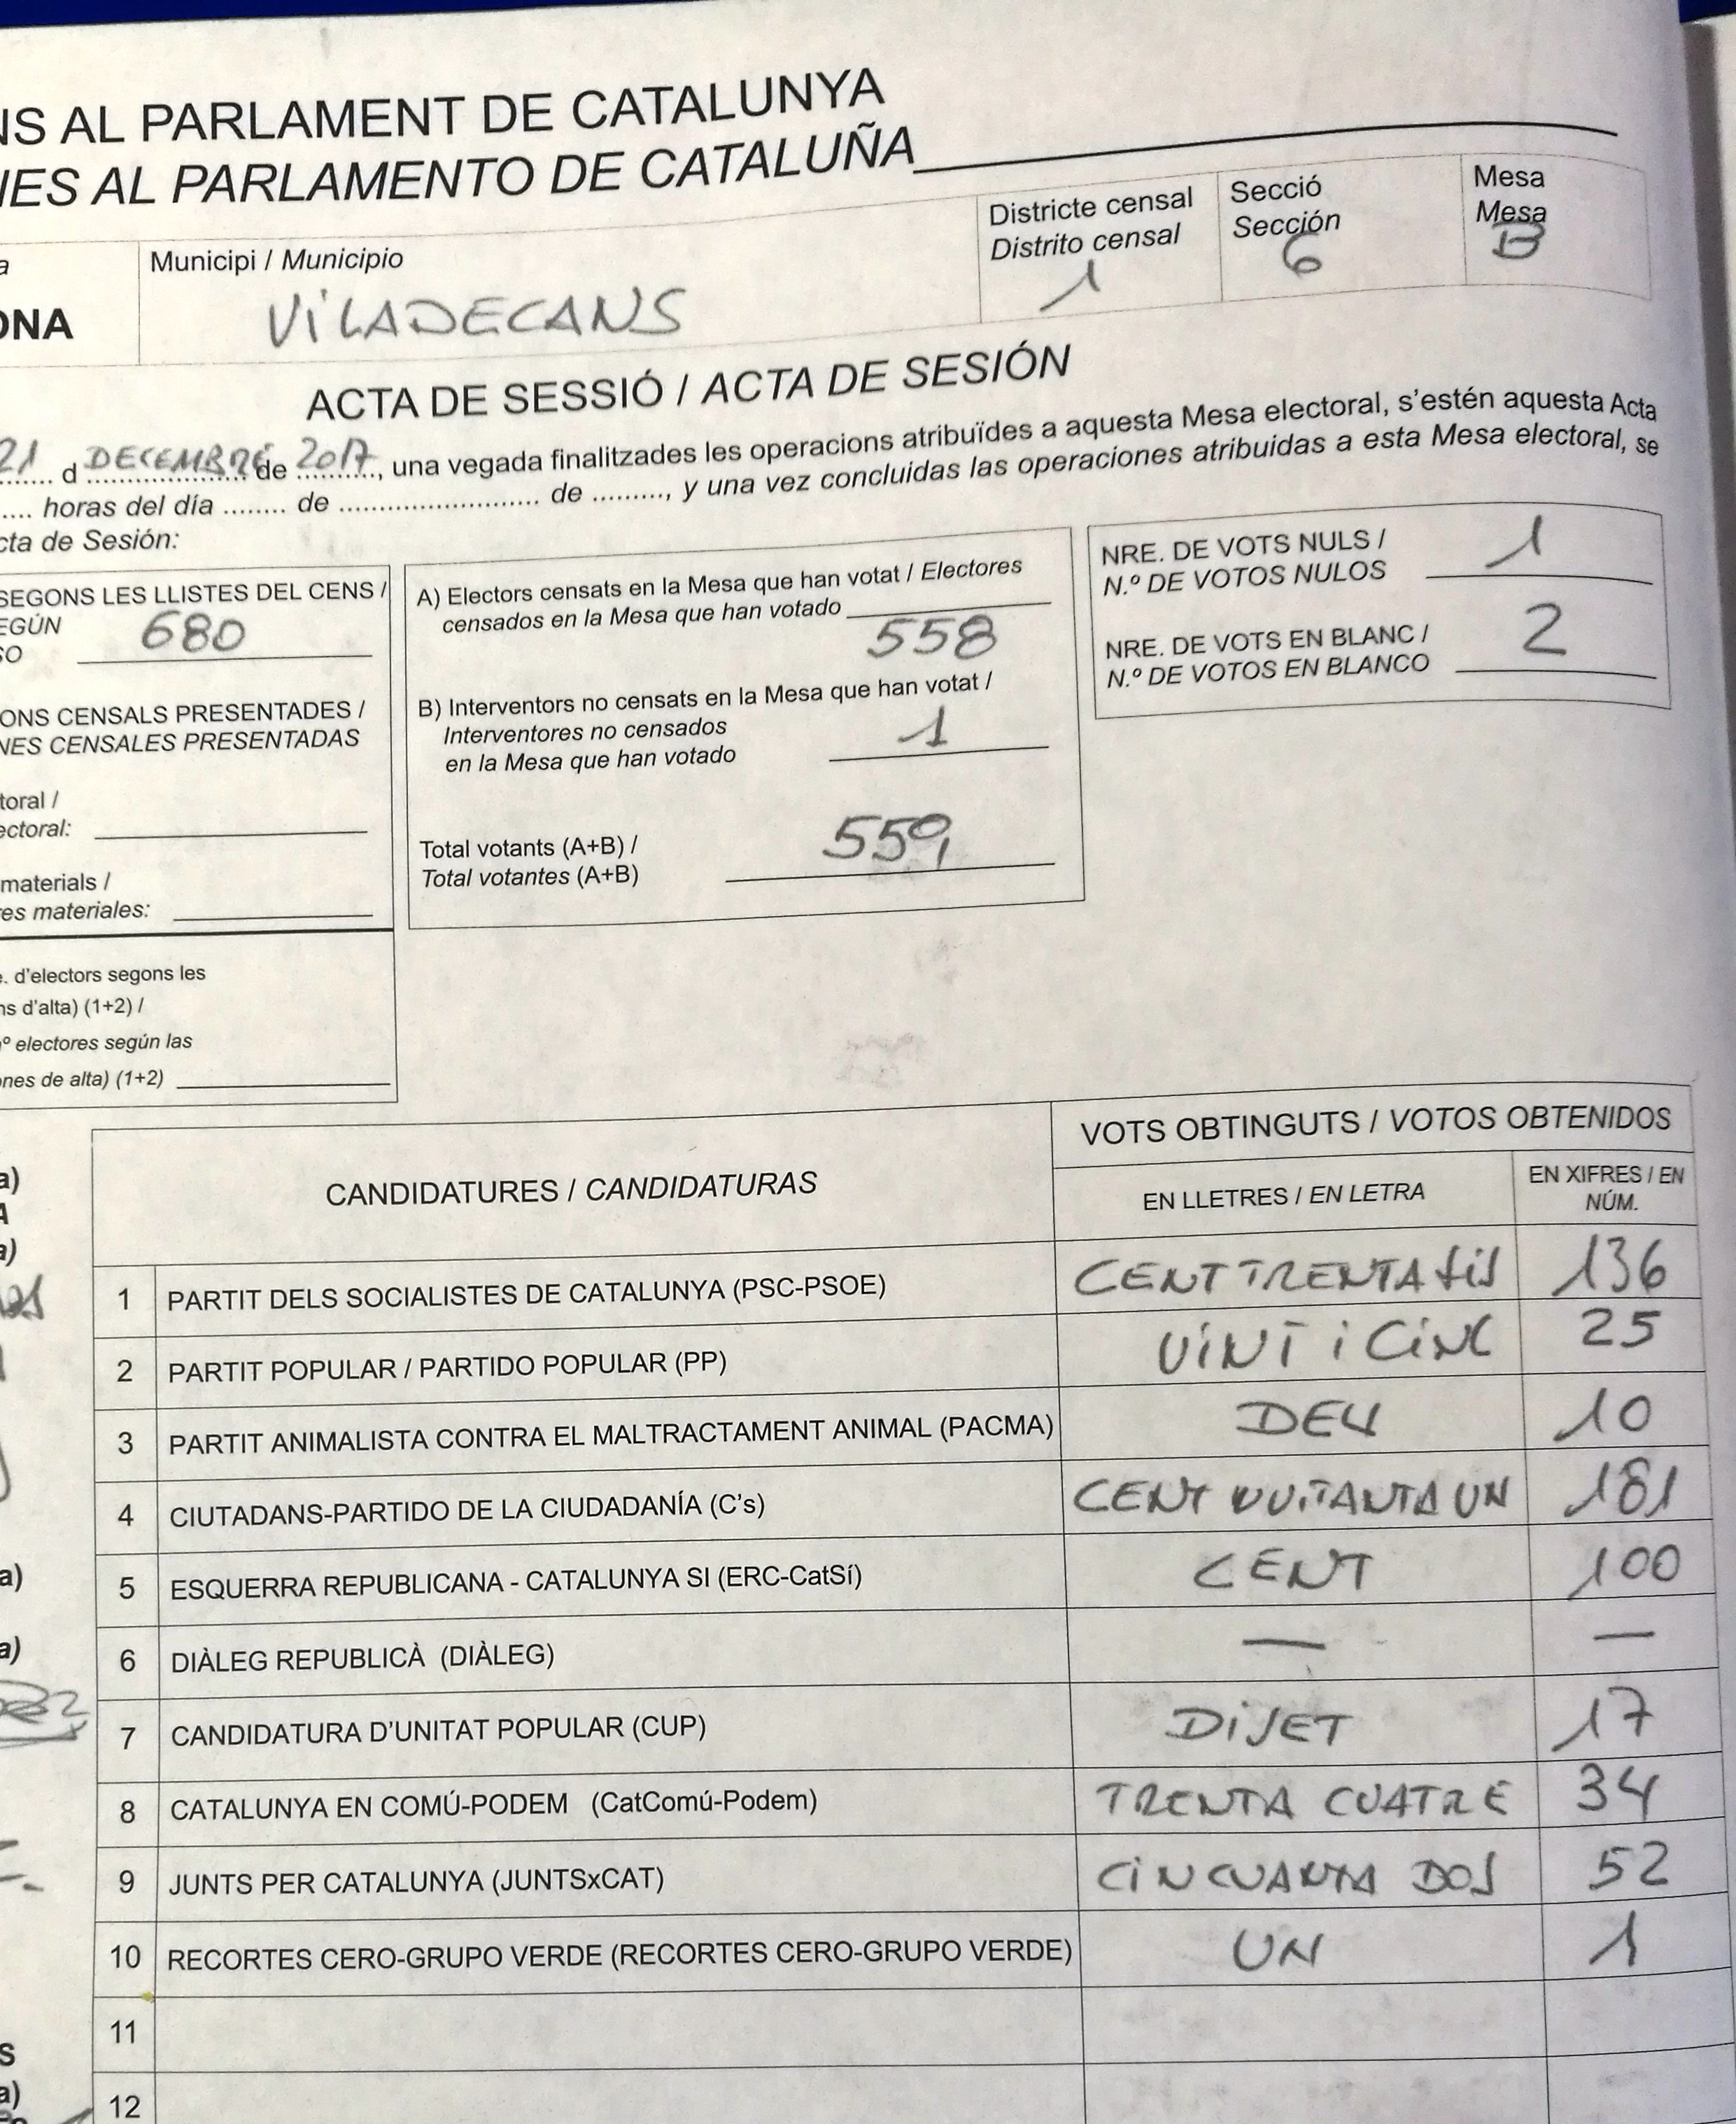 NS AL PARLAMENT DE CATALUNYA
NES AL PARLAMENTO DE CATALUÑA
Districte censal
Distrito censal
1
Secció
Sección
6
Mesa
Mesa
B
a
ONA
Municipi / Municipio
VILADECANS
ACTA DE SESSIÓ / ACTA DE SESIÓN
21 d DECEMBRE de 2017, una vegada finalitzades les operacions atribuïdes a aquesta Mesa electoral, s'estén aquesta Acta
.... horas del día ........ de .......................... de ........., y una vez concluidas las operaciones atribuidas a esta Mesa electoral, se
cta de Sesión:
SEGONS LES LLISTES DEL CENS /
EGÚN
SO 680
ONS CENSALS PRESENTADES /
NES CENSALES PRESENTADAS
toral /
ectoral:
materials /
res materiales:
e. d'electors segons les
ns d'alta) (1+2) /
nº electores según las
ones de alta) (1+2)
A) Electors censats en la Mesa que han votat / Electores
censados en la Mesa que han votado
558
B) Interventors no censats en la Mesa que han votat /
Interventores no censados
en la Mesa que han votado 1
Total votants (A+B) /
Total votantes (A+B) 559
NRE. DE VOTS NULS /
N.º DE VOTOS NULOS 1
NRE. DE VOTS EN BLANC /
N.º DE VOTOS EN BLANCO 2
CANDIDATURES / CANDIDATURAS
VOTS OBTINGUTS / VOTOS OBTENIDOS
EN LLETRES / EN LETRA
EN XIFRES / EN
NÚM.
1 PARTIT DELS SOCIALISTES DE CATALUNYA (PSC-PSOE) CENT TRENTA SIS 136
2 PARTIT POPULAR / PARTIDO POPULAR (PP) VINT I CINC 25
3 PARTIT ANIMALISTA CONTRA EL MALTRACTAMENT ANIMAL (PACMA) DEU 10
4 CIUTADANS-PARTIDO DE LA CIUDADANÍA (C's) CENT VUITANTA UN 181
5 ESQUERRA REPUBLICANA - CATALUNYA SI (ERC-CatSí) CENT 100
6 DIÀLEG REPUBLICÀ (DIÀLEG) — —
7 CANDIDATURA D'UNITAT POPULAR (CUP) DISET 17
8 CATALUNYA EN COMÚ-PODEM (CatComú-Podem) TRENTA CUATRE 34
9 JUNTS PER CATALUNYA (JUNTSxCAT) CINCUANTA DOS 52
10 RECORTES CERO-GRUPO VERDE (RECORTES CERO-GRUPO VERDE) UN 1
11
12
a)
A
a)
a)
a)
S
a)